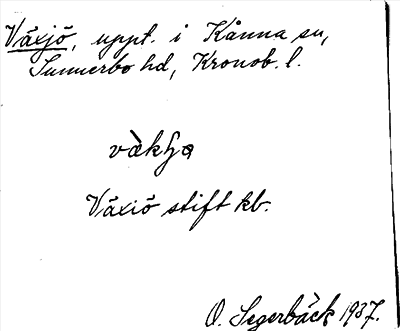 Växjö, uppt. i Kånna sn,
Sunnerbo hd, Kronob. l.
Växiö stift kb.
O. Segerbäck 1937.